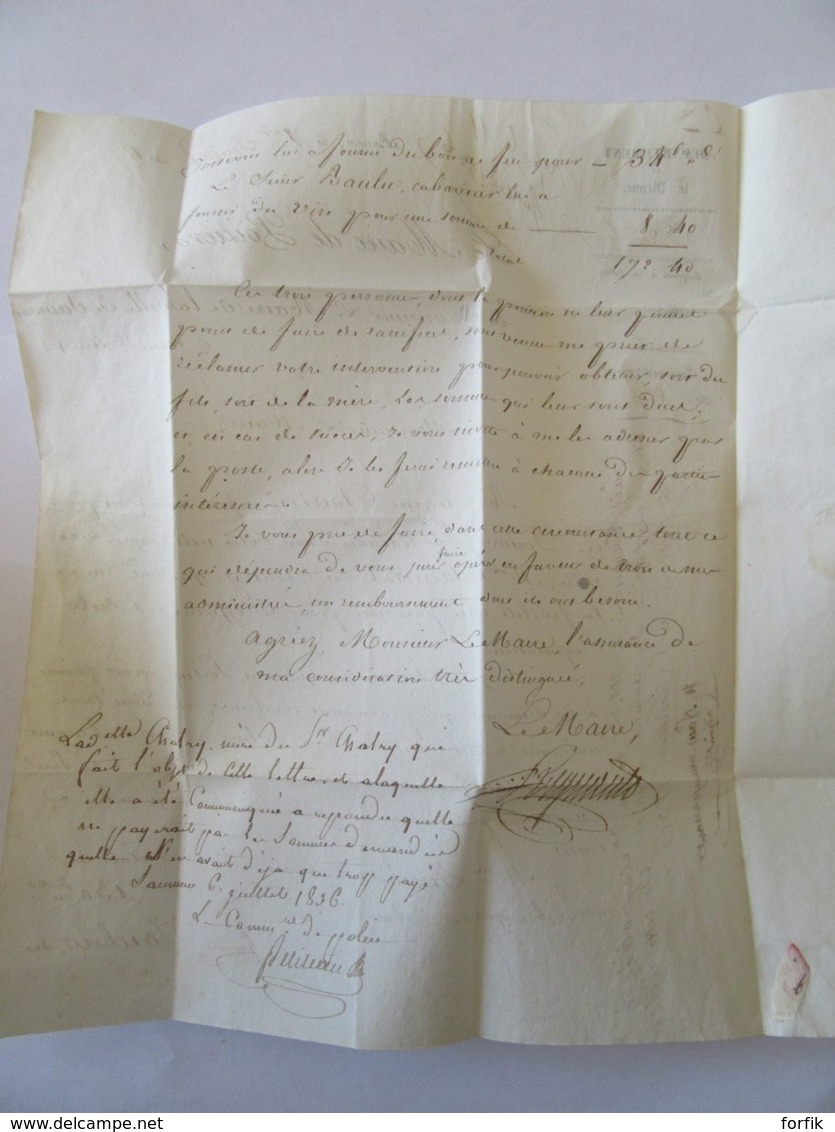 lui a fourni du bois de feu pour — 34 " "
Le Sieur Baulu, cabaretier lui a
fourni du vin pour une somme de — 8. 40
Total 172 40
Ces trois personnes, dont la position ne leur permet
point de faire de sacrifice, sont venues me prier de
réclamer votre intervention pour pouvoir obtenir, soit du
fils, soit de la mère, les sommes qui leur sont dues,
et, en cas de succès, je vous invite à me les adresser par
la poste, alors je les ferai remettre à chacune des parties
intéressées.
Je vous prie de faire, dans cette circonstance, tout ce
qui dépendra de vous pour faire opérer en faveur de trois de mes
administrés, un remboursement dont ils ont besoin.
Agréez, Monsieur Le Maire, l'assurance de
ma considération très distinguée.
Le Maire,
Lad elle Chatry, mère du Sr Chatry qui
fait l'objet de cette lettre, et a laquelle
elle a été Communiquée a repondu quelle
ne payerait pas les Sommes demandées
quelle n'en avait déja que trop payé
Saumur 6 juillet 1836.
Le Commre de police
forfik
delcampe.net